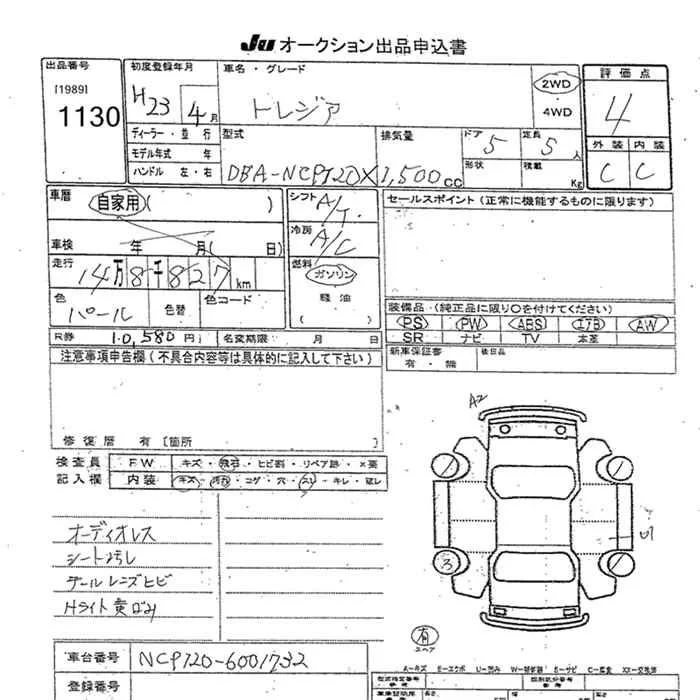 Ju オークション出品申込書
出品番号
[1989]
1130
初度登録年月
H23 4月
車名・グレード
トレジア
2WD
4WD
評価点
4
外装 内装
C C
ディーラー・並行
モデル年式 年
ハンドル 左・右
型式
DBA-NCP120X
排気量
1,500cc
ドア 5
定員 5人
形状
積載 Kg
車歴
自家用( )
車検 年 月( 日)
走行
14万8千827km
色
パール
色替
色コード
シフト A/T
冷房 A/C
燃料
ガソリン
軽油
( )
セールスポイント (正常に機能するものに限ります)
装備品 (純正品に限り○を付けてください)
PS PW ABS エアB AW
SR ナビ TV 本革
新車保証書
有・無
後日品
R券 10,580円
名変期限 月 日
注意事項申告欄 (不具合内容等は具体的に記入して下さい)
修復歴 有 [箇所 ]
検査員
記入欄
FW キズ・飛石・ヒビ割・リペア跡・×要
内装 キズ・汚れ・コゲ・穴・スレ・キレ・破レ
オーディオレス
シート汚し
テールレンズヒビ
Hライト黄ばみ
A2
U1
3
有
スペア
A−キズ E−エクボ U−凹み W−補修跡 S−サビ C−腐食 XX−交換済
車台番号 NCP120-6001732
登録番号
型式指定番号
類別区分番号